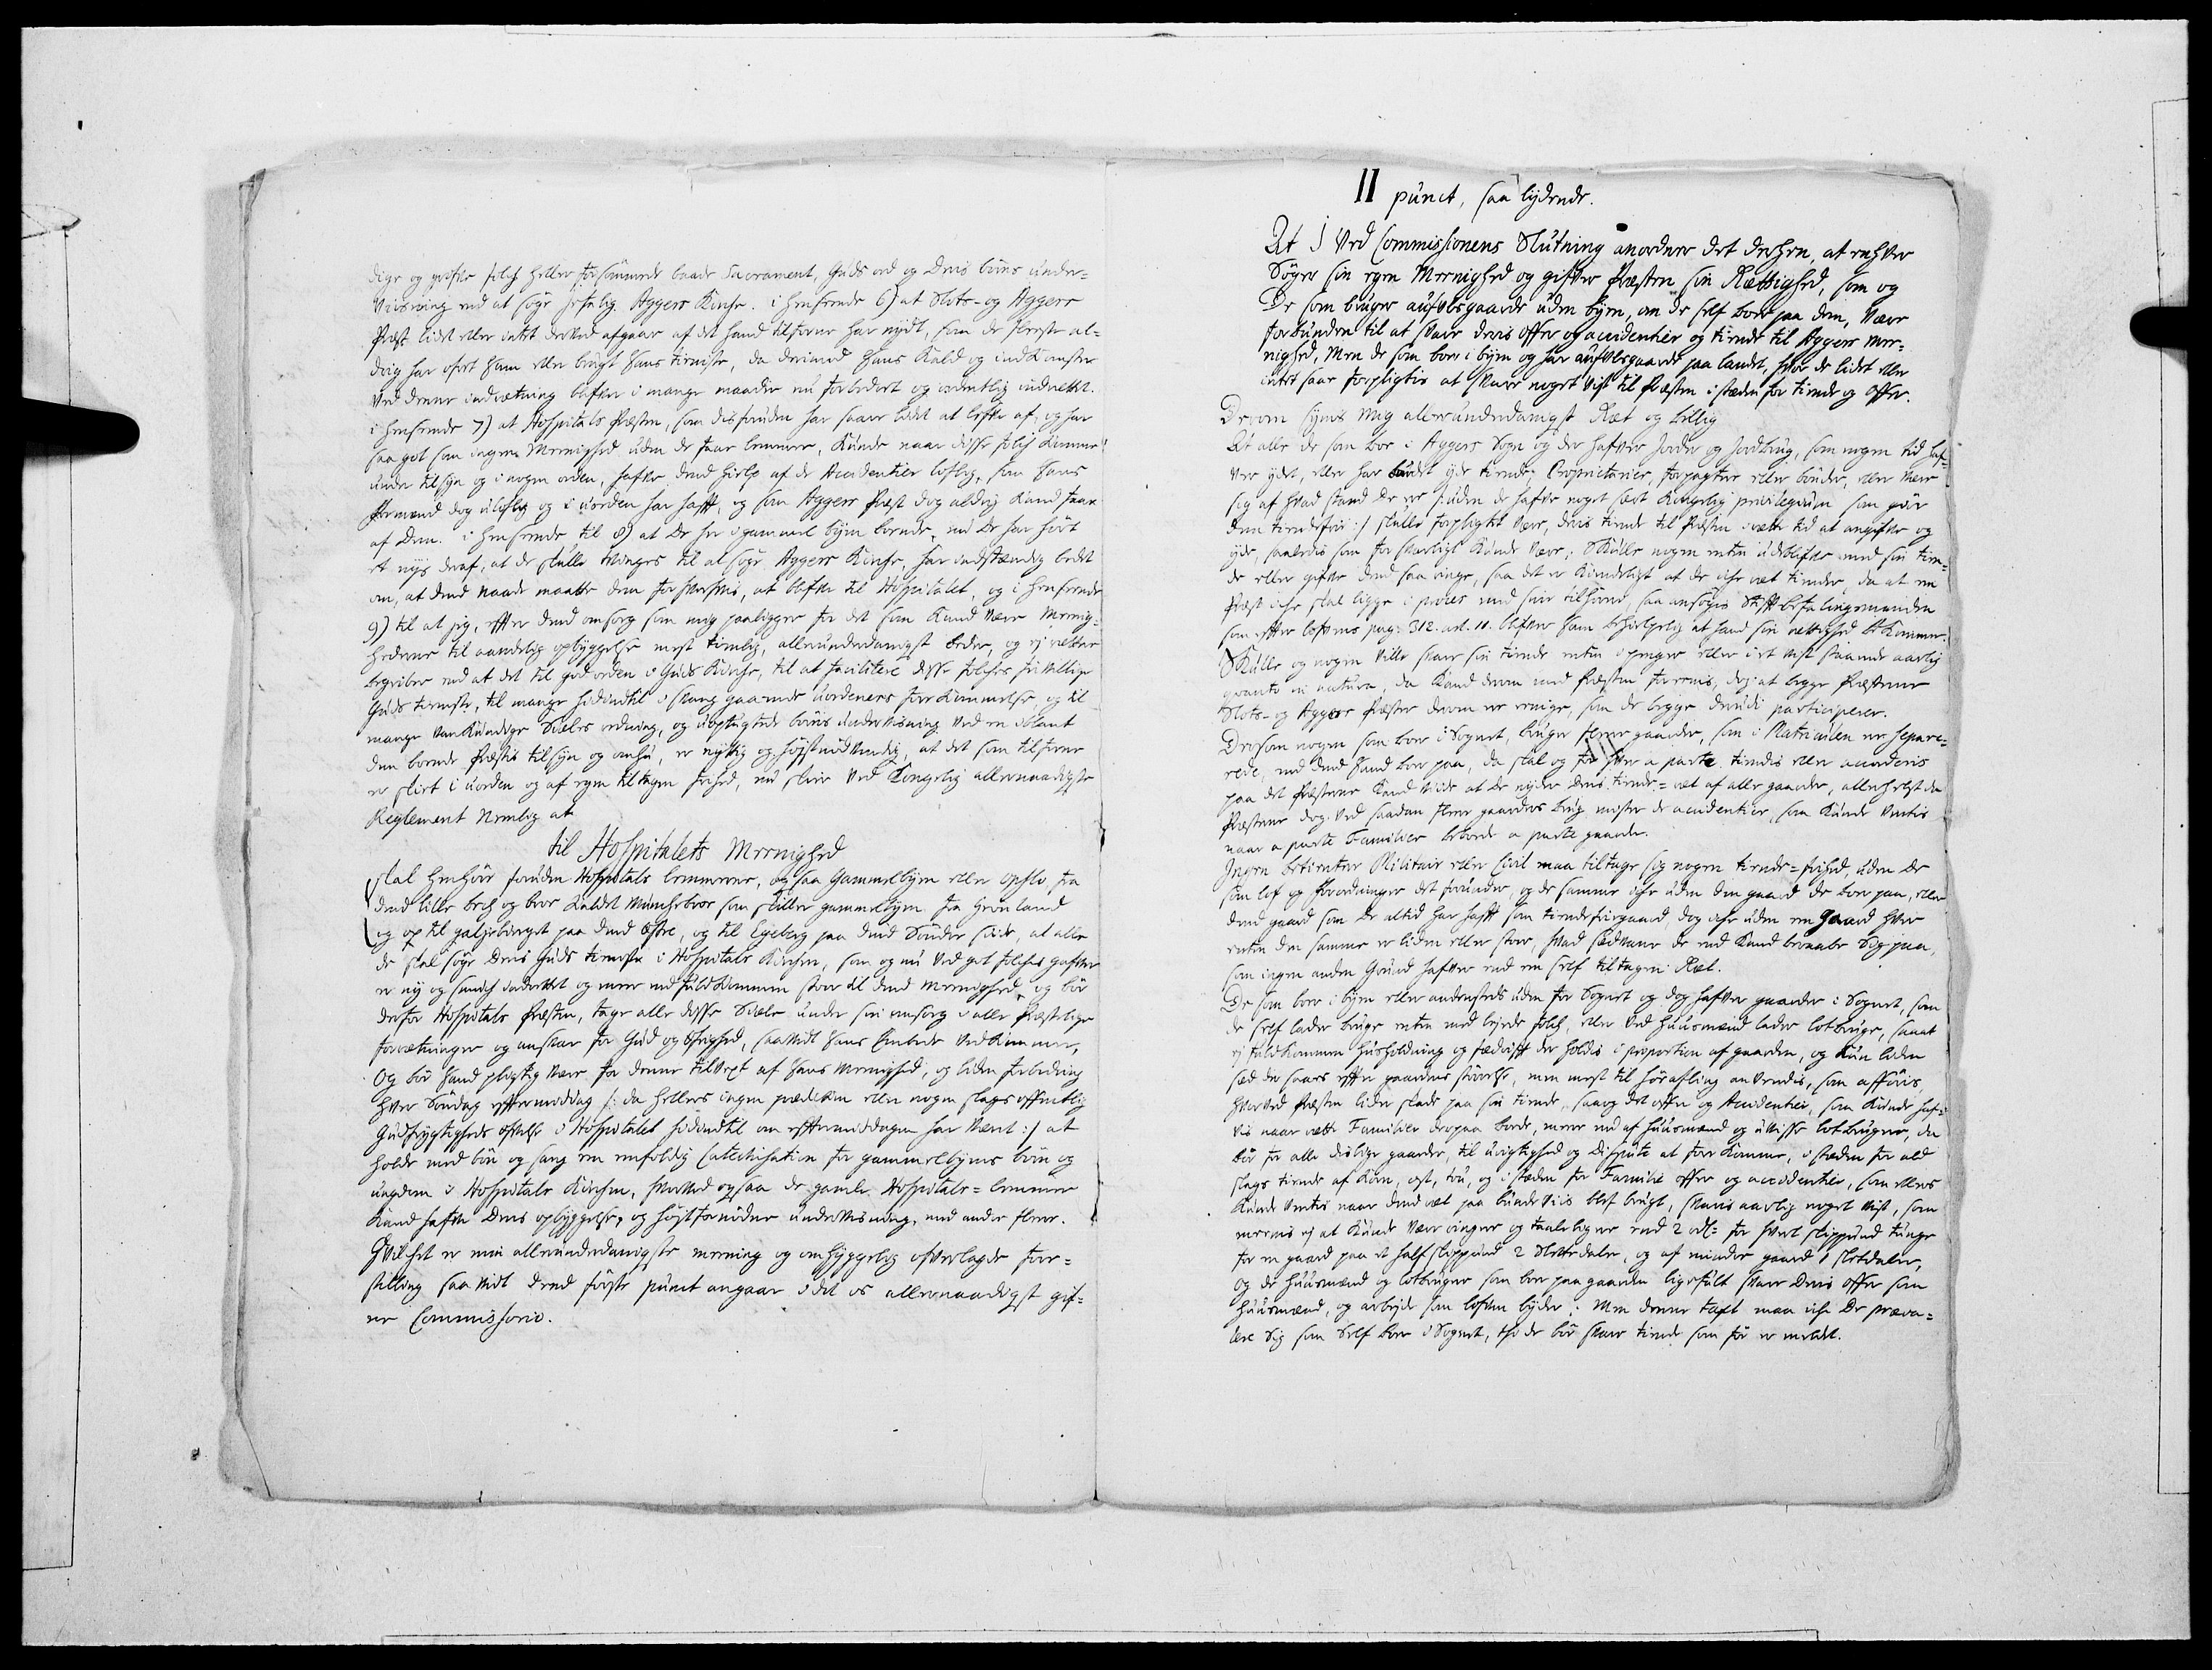 dige og grofve folch heller forsömmede baade Sacrament, Guds ord og Deris börns under=
Viisning end at söge jefnlig Aggers Kirche. i henseende 6) at Slots- og Aggers
Præst lidet eller intet derved afgaar af det hand tilforne har nydt, som de fleeste al=
drig har ofret ham eller brugt hans tieniste, da derimod hans Kald og indkomster
ved denne indretning blifver i mange maader nu forbedret og ordentlig indrettet.
i henseende 7) at Hospitals Præsten, som desforuden har saare lidet at lefve af, og har
saa got som ingen Meenighed uden de faar lemmer, Kunde naar disse folch Kommer
under tilsyn og i nogen orden, hafve dend hielp af de Accidentier lovlig, som hans
Formænd dog ulovlig og i uorden har hafft, og som Aggers Præst dog aldrig Kand faar
af Dem. i henseende til 8) at De her i gammel byen boende, nu De har hört
et nys deraf, at de skulle tvinges til at söge Aggers Kirche, har indstændig bedet
om, at dend naade maatte dem forhverfves, at blifve til Hospitalet, og i henseende
9) til at jeg, efter dend omsorg som mig paaligger for det som Kand være Meenig=
hederne til aandelig opbyggelse mest tienlig, allerunderdanigst beder, og ej rettere
begriber end at det til god orden i Guds Kirche, til at facilitere disse folches frivillige
Guds tieniste, til mange hidindtil i svang gaaende uordeners forekommelse og til
mange vankundige Siæles redning, og uoptugtede börns underviisning ved en iblant
dem boende Præstis tilsyn og omhu, er nyttig og höjstnödvendig, at det som tilforne
er skeet i uorden og af egen tiltagen frihed, nu skeer ved Kongelig allernaadigste
Reglement Nemlig at
til Hospitalets Meenighed
skal henhöre foruden Hospitals lemmerne, og saa Gammelbyen eller Opslo, fra
dend lille bech og broe kaldet Munchebroe som skiller gammelbyen fra Grönland
og op til galgebierget paa dend östre, og til Egeberg paa dend Söndre side, at alle
de skal söge Deris Guds tieniste i Hospitals Kirchen, som og nu ved got folches gafver
er ny og smuch indrettet og meer end fuldkommen stoer til dend Meenighed, og bör
derfor Hospitals Præsten, tage alle disse Siæle under sin omsorg i alle Præstelige
forretninger og ansvar for Gud og öfrighed, saa vidt hans Embede vedkommer,
Og bör hand pligtig være for denne tilvext af hans Meenighed, og liden forbedring
hver Söndag eftermiddag /: da hellers ingen prædiken eller nogen slags offentlig
Gudfrygtigheds öfvelse i Hospitalet hidindtil om eftermiddagen har været :/ at
holde med bön og sang en eenfoldig Catechisation for gammelbyens börn og
ungdom i Hospitals Kirchen, hvorved ogsaa de gamle Hospitals= lemmer
Kand hafve Deris opbyggelse, og höjstfornödne underviisning, med andre fleere.
Hvilchet er min allerunderdanigste meening og omhyggelig ofverlagde fore=
stilling saa vidt dend förste punct angaar i det os allernaadigst gif=
ne Commissorio.
II punct, saa lydende.
At I ved Commissionens Slutning anordner det derhen, at enhver
Söger sin egen Meenighed og gifver Præsten sin Rættighed, som og
De som bruger aufvelsgaarde uden byen, om de self boer paa dem, være
forbunden til at svare deris offer og accidentier og tiende til Aggers mee=
nighed, Men de som boer i byen og har aufvelsgaarde paa landet, hvor de lidet eller
intet saar forpligtes at svare noget vist til Præsten i steden for tiende og Offer.
Derom synes mig allerunderdanigst Ræt og billig
At alle de som boer i Aggers Sogn og der hafver Jorder og Jordbrug, som nogen tid haf=
ver ydet, eller har burdt yde tiende, Proprietarier, forpagter eller bönder, eller være
sig af hvad stand De er /: uden de hafver noget sært Kongelig privilegium som giör
dem tiendefri :/ skulle forpligtet være, deris tiende til Præsten i rætte tid at angifve og
yde, saaledes som forsvarligt Kunde være, Skulle nogen enten udeblifve med sin tien=
de eller gifve dend saa ringe, saa det er Kiendeligt at de iche ræt tiender, da at en
Præst iche skal ligge i proces med sine tilhörer, saa ansöges Stiftbefalingsmanden
som efter lofvens pag: 312. art. 10. blifver ham behielpelig at hand sin rettighed bekommer.
Skulle og nogen ville svare sin tiende enten i penger eller i et vist staaende aarlig
qvanto in natura, da Kand derom med Præsten foreenis, dog at begge Præsterne
Slots- og Aggers Præster derom er eenige, som de begge derudi participerer.
Dersom nogen som boer i Sognet, bruger fleere gaarder, som i Matriculen er separe=
rede, end dend hand boer paa, da skal og for hver a parte tiendes eller accorderis
paa det Præsterne Kand vide at De nyder Deris tiende= ræt af alle gaarder, allerhelst da
Præsterne dog ved saadan fleere gaarders brug mister de accidentier, som Kunde ventis
naar a parte Familier beboede a parte gaarde.
Ingen betienter Militair eller Civil maa tiltage sig nogen tiende=frihed, uden De
som lof og Forordninger det forunder, og de samme iche uden den gaard de boer paa, eller
dend gaard som De altid har hafft som tiendefriegaard, dog iche uden een gaard hver
enten den samme er liden eller stoer, hvad sædvane de end Kand beraabe sig paa,
som ingen anden Grund hafver end en self tiltagen Ræt.
De som boer i byen eller andensteds uden for Sognet og dog hafver gaarder i Sognet, som
de self lader bruge enten med lejede folch, eller ved huusmænd lader lotbruge, saa at
ej fuldkommen huusholdning og fædrifft der holdis i proportion af gaarden, og Kun liden
sæd der saaes efter gaardens störrelse, men mest til höeafling anvendis, som afföris,
hvorved Præsten lider skade paa sin tiende, saavog det offer og Accidentier, som Kunde haf=
vis naar rætte Familier derpaa boede, meere end af huusmænd og uvisse lotbruger, da
bör for alle deslige gaarder, til urigtighed og Dispute at forekomme, i steden for ald
slags tiende af Korn, ost, höe, og i steden for Familie offer og accidentier, som ellers
Kunde ventis naar dend ret paa bundeviis blef brugt, svares aarlig noget vist, som
meenis ej at Kunde være ringere og taaleligere end 2 rdl= for hvert skippund tunge
for en gaard paa et half skippund 2 Slettedaler, og af minder gaard 1 sletdaler,
og de huusmænd og lotbruger som boer paa gaarden ligefult svare Deris offer som
huusmænd, og arbejde som lofven byder: Men denne taxt maa iche De præva=
lere sig som Self boer i Sognet, thi de bör svare tiende som för er meldet.